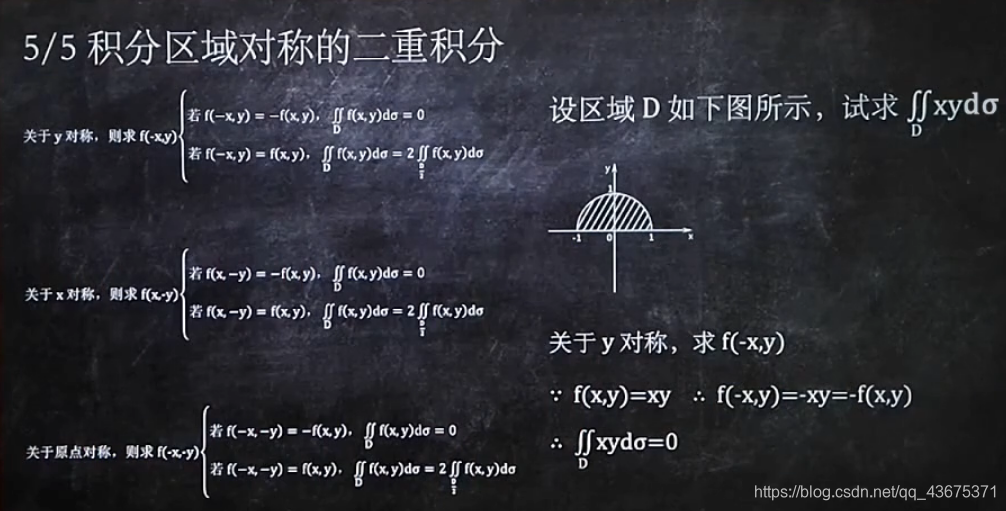 5/5 积分区域对称的二重积分
关于 y 对称，则求 f(-x,y)
若 f(−x, y) = −f(x, y)， ∬_D f(x, y)dσ = 0
若 f(−x, y) = f(x, y)， ∬_D f(x, y)dσ = 2 ∬_{D/2} f(x, y)dσ
关于 x 对称，则求 f(x,-y)
若 f(x, −y) = −f(x, y)， ∬_D f(x, y)dσ = 0
若 f(x, −y) = f(x, y)， ∬_D f(x, y)dσ = 2 ∬_{D/2} f(x, y)dσ
关于原点对称，则求 f(-x,-y)
若 f(−x, −y) = −f(x, y)， ∬_D f(x, y)dσ = 0
若 f(−x, −y) = f(x, y)， ∬_D f(x, y)dσ = 2 ∬_{D/2} f(x, y)dσ
设区域 D 如下图所示，试求 ∬_D xydσ
y
1
-1 0 1 x
关于 y 对称，求 f(-x,y)
∵ f(x,y)=xy ∴ f(-x,y)=-xy=-f(x,y)
∴ ∬_D xydσ=0
https://blog.csdn.net/qq_43675371